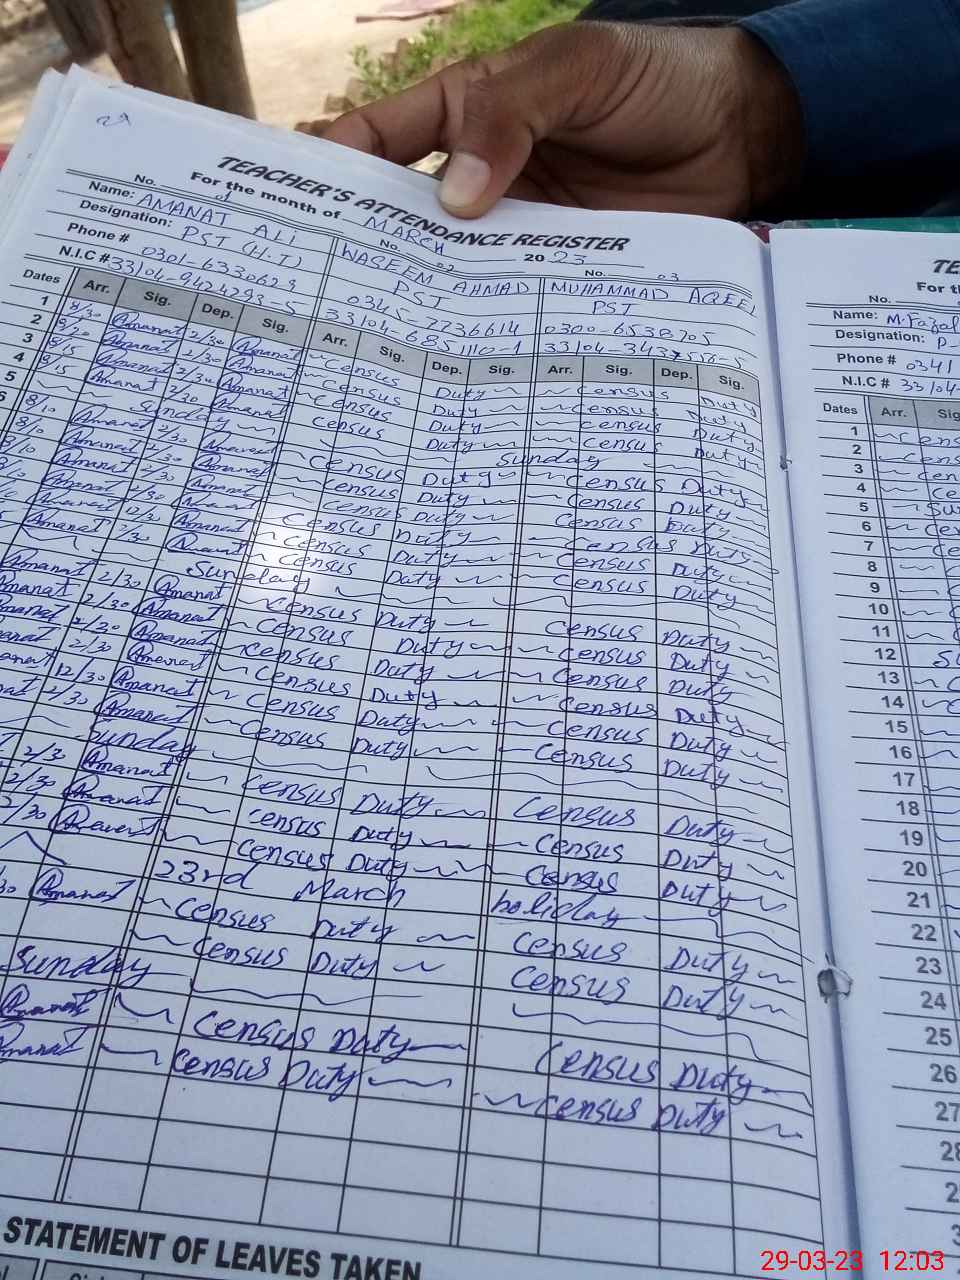 TEACHER'S ATTENDANCE REGISTER
For the month of MARCH 2023
No. 01 No. 02 No. 03
Name: AMANAT ALI WASEEM AHMAD MUHAMMAD AQEEL
Designation: PST (H.T) PST PST
Phone # 0301-6330623 0345-7736614 0300-6538705
N.I.C # 33104-9424293-5
Dates Arr. Sig. Dep. Sig. Arr. Sig. Dep. Sig. Arr. Sig. Dep. Sig.
1 8/30 Amanat 2/30 Amanat Census Duty Census Duty
2 Amanat 2/30 Amanat Census Duty Census Duty
3 8/15 Amanat 2/30 Amanat Census Duty Census Duty
4 8/15 Amanat 2/30 Amanat Census Duty Census Duty
5 Sunday Sunday
6 8/10 Amanat 2/30 Amanat Census Duty Census Duty
8/10 Amanat 2/30 Amanat Census Duty Census Duty
Amanat 2/30 Amanat Census Duty Census Duty
Amanat 2/30 Amanat Census Duty Census Duty
Amanat 12/30 Amanat Census Duty Census Duty
Amanat 2/30 Amanat Census Duty Census Duty
Sunday
Amanat 2/30 Amanat Census Duty Census Duty
Amanat 2/30 Amanat Census Duty Census Duty
Amanat 2/30 Amanat Census Duty Census Duty
2/30 Amanat Census Duty Census Duty
12/30 Amanat Census Duty Census Duty
2/30 Amanat Census Duty Census Duty
Sunday
2/30 Amanat Census Duty Census Duty
2/30 Amanat Census Duty Census Duty
2/30 Census Duty Census Duty
23rd March holiday
Amanat Census Duty Census Duty
Census Duty Census Duty
Sunday
Amanat Census Duty Census Duty
Amanat Census Duty Census Duty
STATEMENT OF LEAVES TAKEN
For
No.
Name: M. Fazal
Designation:
Phone # 0341
N.I.C # 33104-
Dates Arr.
1
2
3
4
5
6
7
8
9
10
11
12
13
14
15
16
17
18
19
20
21
22
23
24
25
26
27
29-03-23 12:03